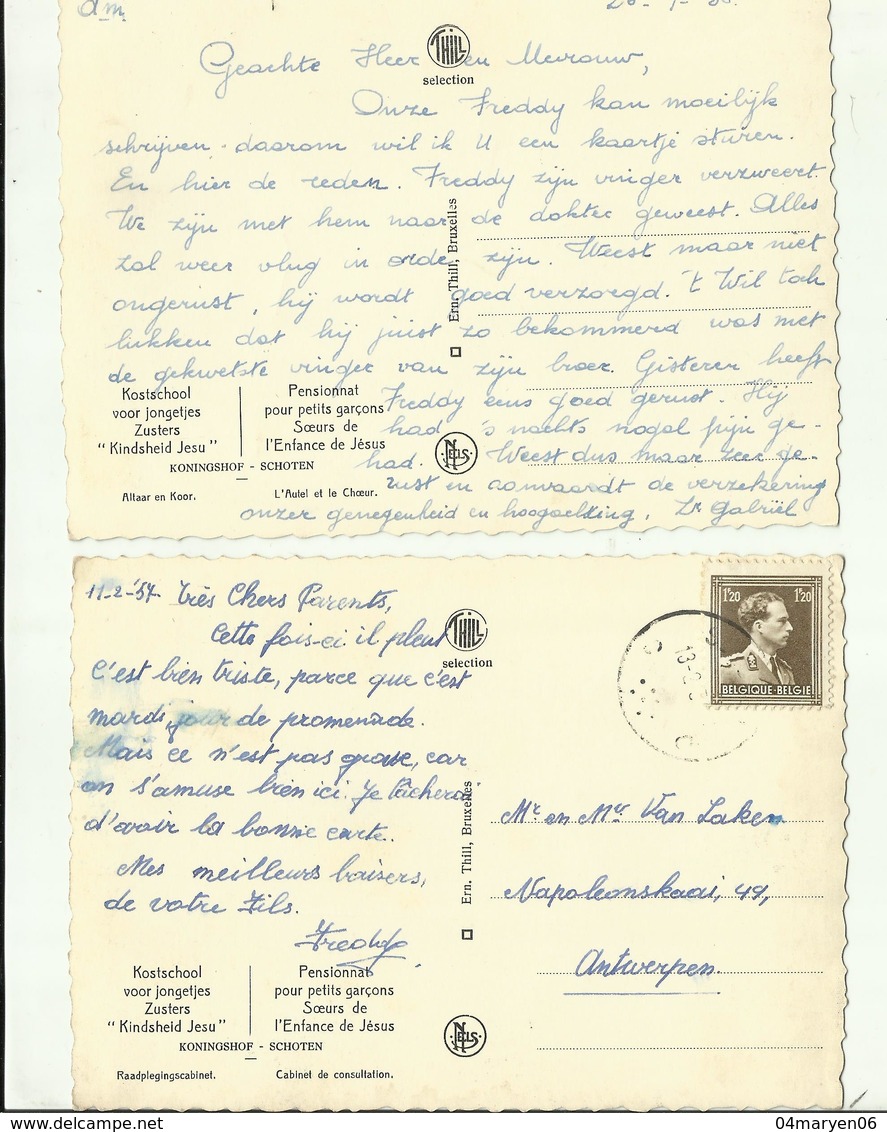 THILL
selection
Geachte Heer en Mevrouw,
Onze Freddy kan moeilijk
schrijven. daarom wil ik U een kaartje sturen.
En hier de reden. Freddy zijn vinger verzweert.
We zijn met hem naar de dokter geweest. Alles
zal weer vlug in orde zijn. Weest maar niet
ongerust, hij wordt goed verzorgd. 't Wil toch
lukken dat hij juist zo bekommerd was met
de gekwetste vinger van zijn broer. Gisteren heeft
Freddy eens goed gerust. Hij
had 's nachts nogal pijn ge-
had. Weest dus maar zeer ge-
rust en aanvaardt de verzekering
onzer genegenheid en hoogachting, Zr Gabriël
Ern. Thill, Bruxelles
Kostschool
voor jongetjes
Zusters
"Kindsheid Jesu"
Pensionnat
pour petits garçons
Sœurs de
l'Enfance de Jésus
KONINGSHOF - SCHOTEN
NELS
Altaar en Koor.
L'Autel et le Chœur.
11-2-'57- Très Chers Parents,
Cette fois-ci il pleut
C'est bien triste, parce que c'est
mardi, jour de promenade.
Mais ce n'est pas grave, car
on s'amuse bien ici. Je tâcherai
d'avoir la bonne carte.
Mes meilleurs baisers,
de votre Fils.
Freddy
THILL
selection
1F20
1F20
BELGIQUE-BELGIE
Mr en Mvr Van Laken
Napoleonskaai, 49,
Antwerpen.
Ern. Thill, Bruxelles
Kostschool
voor jongetjes
Zusters
"Kindsheid Jesu"
Pensionnat
pour petits garçons
Sœurs de
l'Enfance de Jésus
KONINGSHOF - SCHOTEN
NELS
Raadplegingscabinet.
Cabinet de consultation.
04maryen06